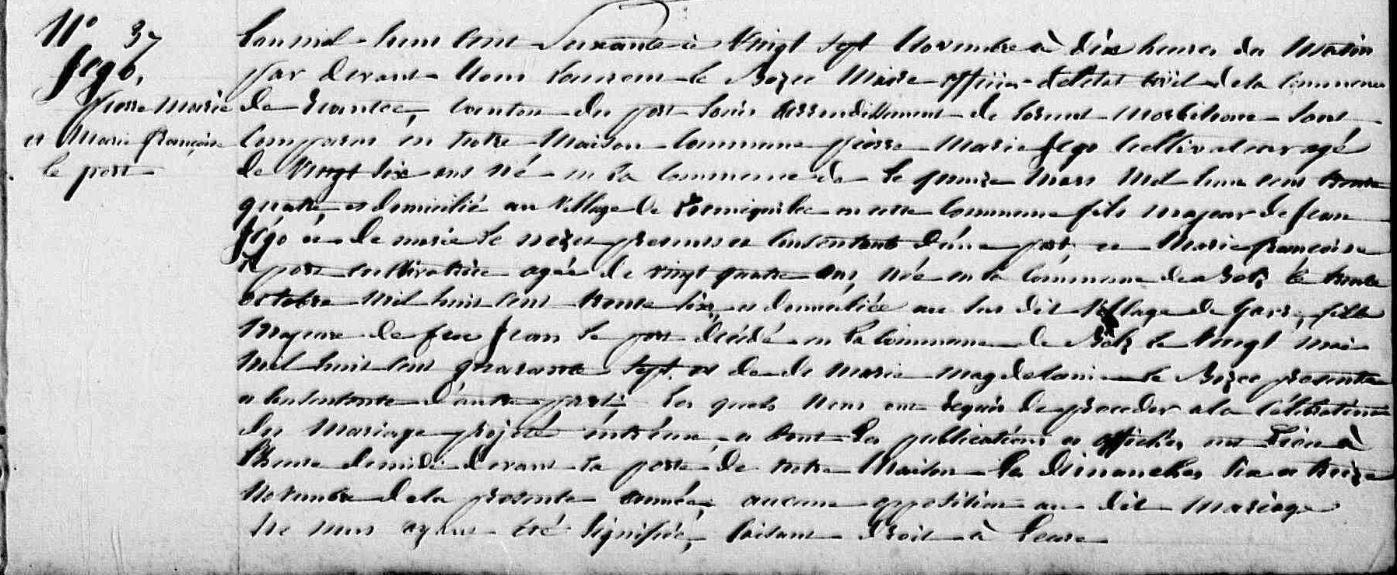 N° 37
Jego,
pierre Marie
et Marie françoise
le port
L'an mil huit cent Soixante le Vingt Sept Novembre à dix heures du Matin
par devant Nous Laurent le Bozec Maire officier de l'état civil de la Commune
de canton du port Louis arrondissement de Lorient Morbihan Sont
Comparus en notre Maison Commune pierre Marie Jego Cultivateur agé
de Vingt Six ans né en la Commune de le quinze Mars Mil huit cent trente
quatre, et domicilié au Village de en cette Commune fils majeur de Jean
Jego et de marie le presents et Consentants d'une part, et Marie françoise
le port cultivatrice agée de vingt quatre ans, née en la Commune de Belz le trente
octobre Mil huit cent trente Six, et domiciliée au sus dit Village de fille
Majeure de feu Jean le port décédé en la Commune de Belz le Vingt mai
Mil huit cent quarante Sept. et de de Marie Magdelaine le Bozec presente
et Consentante d'autre part: Les quels Nous ont requis de proceder a la Célébration
du Mariage projeté entr'eux, et dont les publications et affiches ont Lieu à
l'heure de midi devant la porte de notre Maison les dimanches Six et treize
Novembre de la presente année aucune opposition au dit Mariage
Ne nous ayant été Signifiée, faisant droit à leur